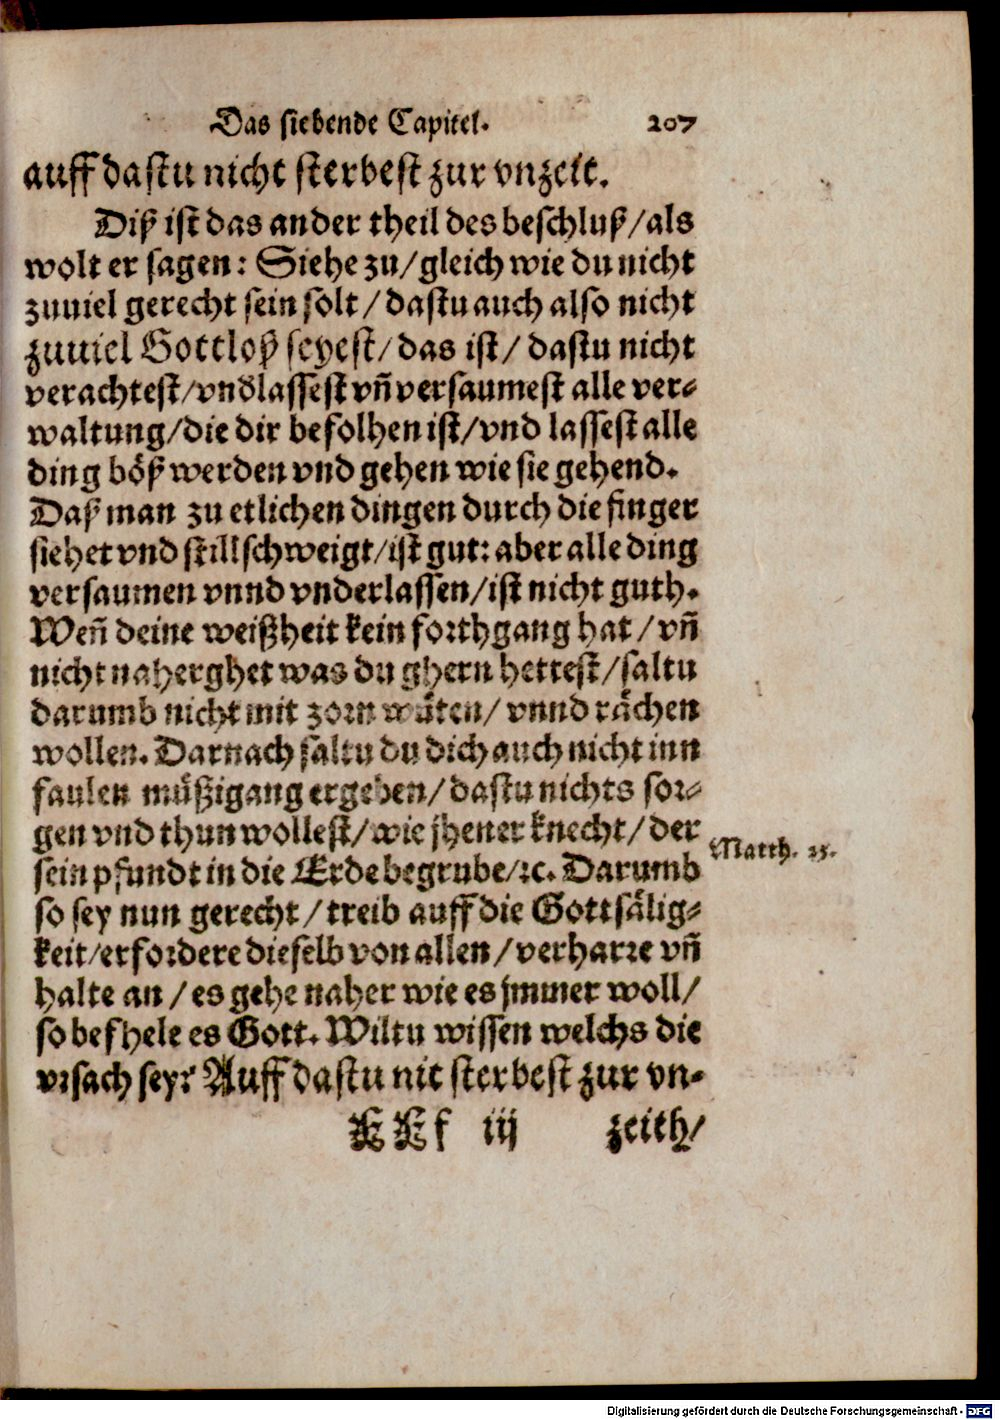 Das siebende Capitel. 207
auff dastu nicht sterbest zur vnzeit.
Diß ist das ander theil des beschluß/als
wolt er sagen: Siehe zu/gleich wie du nicht
zuuiel gerecht sein solt/dastu auch also nicht
zuuiel Gottloß seyest/das ist/dastu nicht
verachtest/vnd lassest vñ versaumest alle ver-
waltung/die dir befolhen ist/vnd lassest alle
ding böß werden vnd gehen wie sie gehend.
Daß man zu etlichen dingen durch die finger
siehet vnd still schweigt/ist gut: aber alle ding
versaumen vnnd vnderlassen/ist nicht guth.
Weñ deine weißheit kein forthgang hat/vñ
nicht naherghet was du ghern hettest/saltu
darumb nicht mit zorn wüten/vnnd rächen
wollen. Darnach saltu du dich auch nicht inn
faulen müßigang ergeben/dastu nichts sor-
gen vnd thun wollest/wie jhener knecht/der
sein pfundt in die Erde begrube/ꝛc. Darumb
Matth. 25.
so sey nun gerecht/treib auff die Gottsälig-
keit/erfordere dieselb von allen/verharre vñ
halte an/es gehe naher wie es jmmer woll/
so befhele es Gott. Wiltu wissen welchs die
vrsach sey? Auff dastu nit sterbest zur vn-
KKk iij zeith/
Digitalisierung gefördert durch die Deutsche Forschungsgemeinschaft - DFG